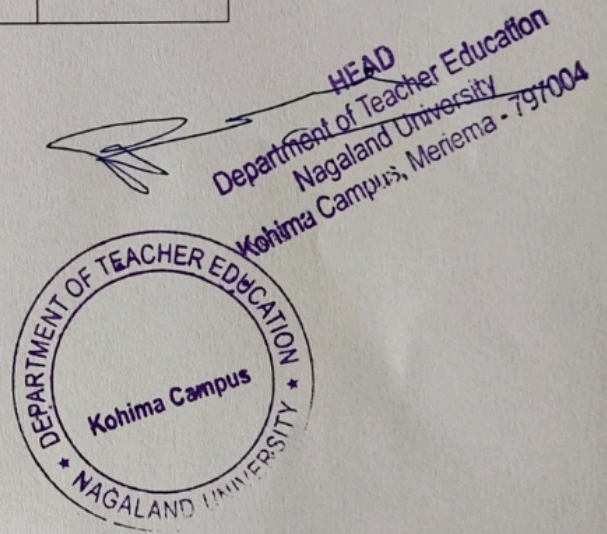 HEAD
Department of Teacher Education
Nagaland University
Kohima Campus, Meriema - 797004
DEPARTMENT OF TEACHER EDUCATION
Kohima Campus
★ NAGALAND UNIVERSITY ★